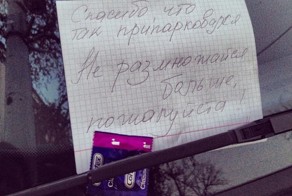 Спасибо что
так припарковался
Не размножайся
больше,
пожалуйста!